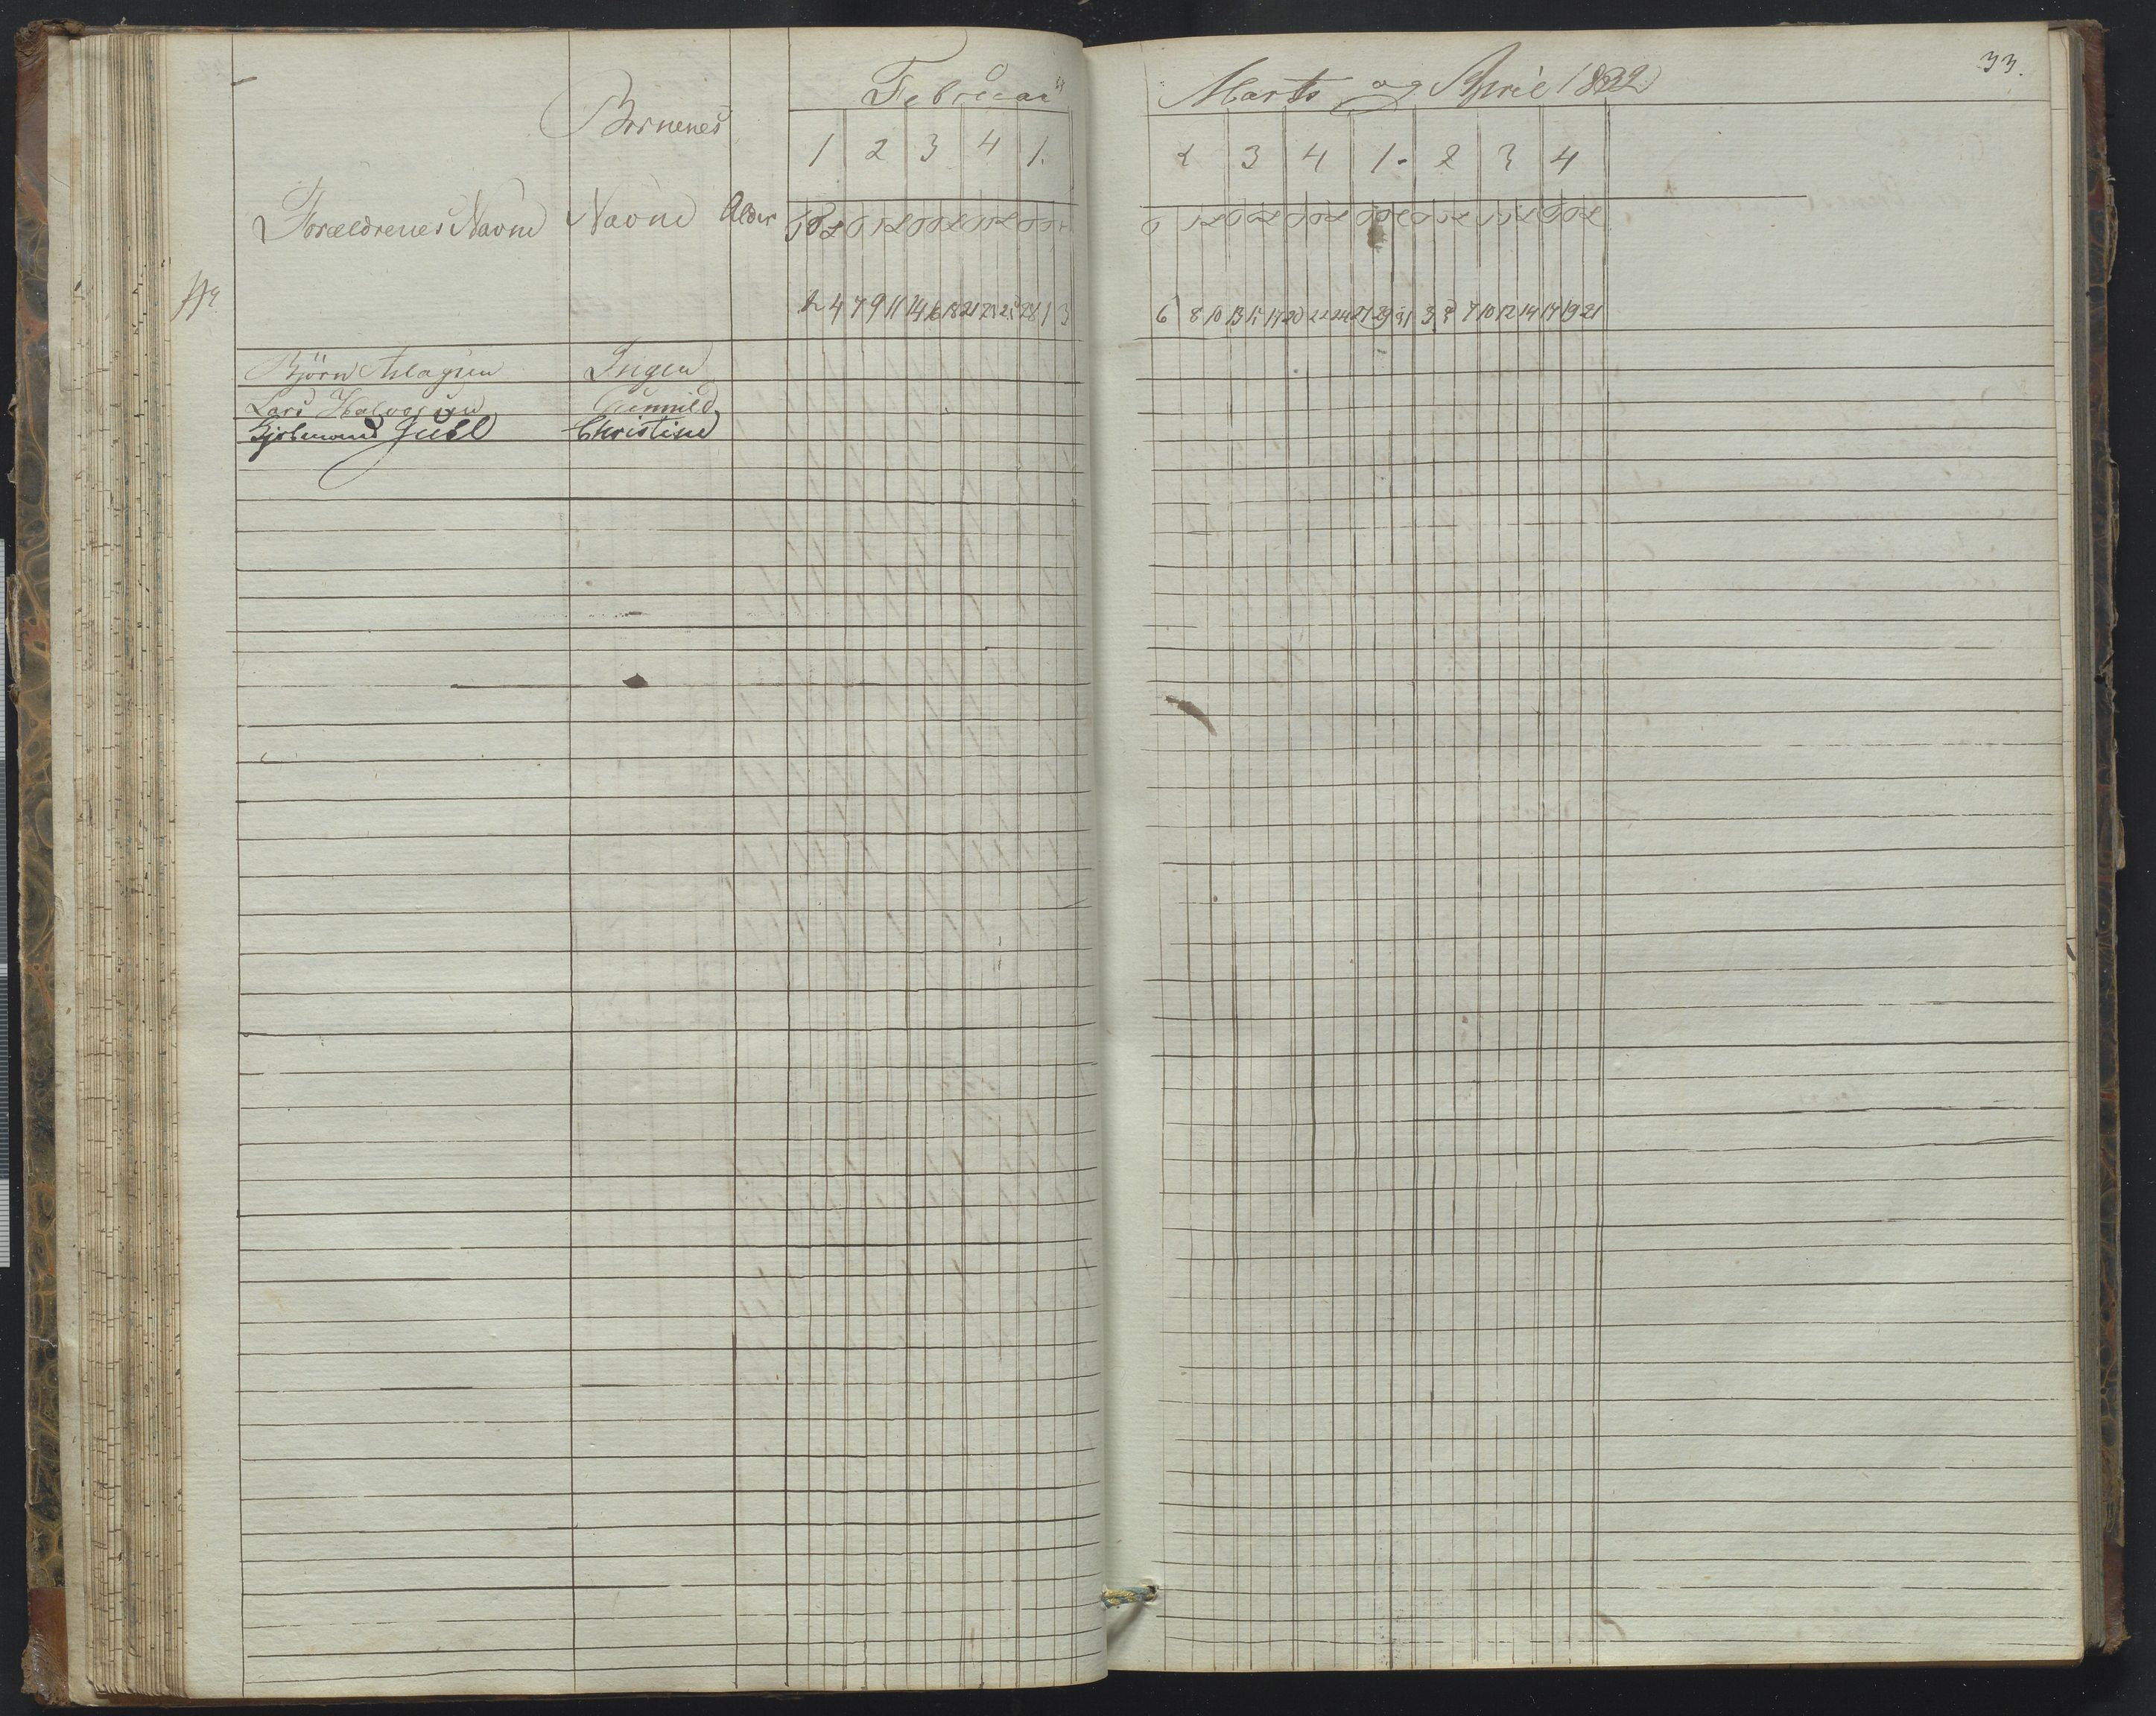 33.
Februar Marts og April 1832
Børnenes
1 2 3 4 1. 2 3 4 1. 2 3 4
Forældrenes Navne Navne Alder
2 4 7 9 11 14 16 18 21 23 25 28 1 3 6 8 10 13 15 17 20 22 24 27 29 31 3 5 7 10 12 14 17 19 21
Björn Aslagsen Ingen
Lars Halvorsen Gunnild
Juell Christine